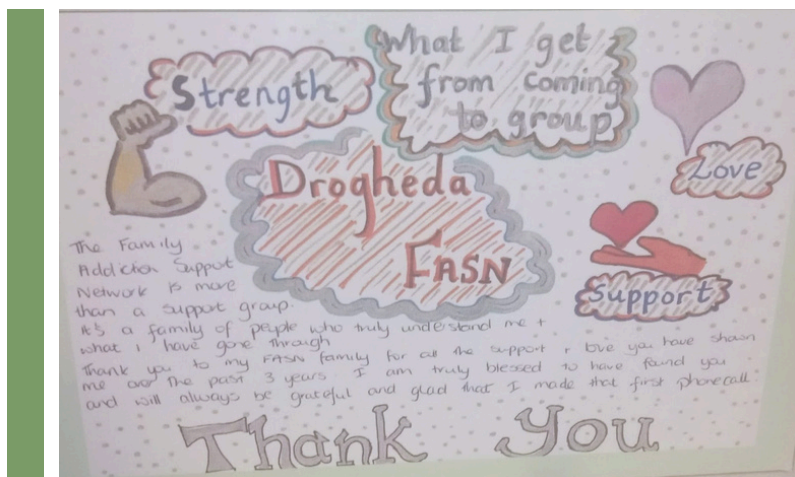 What I get
from coming
to group
Strength
Love
Drogheda
FASN
Support
The Family
Addiction Support
Network is more
than a support group.
It's a family of people who truly understand me +
what i have gone through
Thank you to my FASN family for all the support + love you have shown
me over the past 3 years I am truly blessed to have found you
and will always be grateful and glad that I made that first phonecall.
Thank You